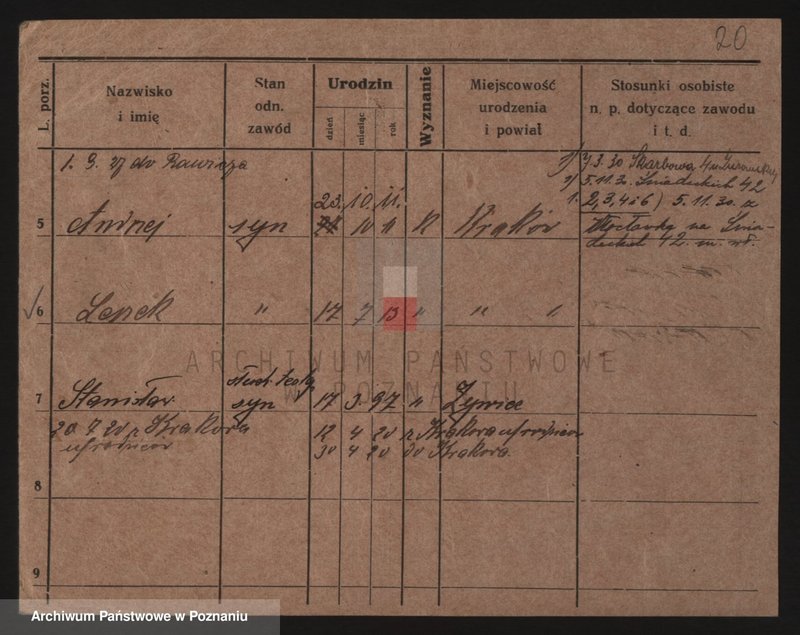 20
L. porz.
Nazwisko
i imię
Stan
odn.
zawód
Urodzin
dzień
miesiąc
rok
Wyznanie
Miejscowość
urodzenia
i powiat
Stosunki osobiste
n. p. dotyczące zawodu
i t. d.
1. 9. 27 do Rawicza
1) 7.3.30 Skarbowa 4
2) 5.11.30. Śniadeckich 42
1. 2, 3, 4 i 6) 5.11.30. z
23. 10. 11.
5 Andrzej syn 10 11 K Kraków
na Śnia-
deckich 42. m. wł.
6 Leszek " 17 7 13 " " "
ARCHIWUM PAŃSTWOWE
W POZNANIU
stud.
7 Stanisław syn 17 3. 97 " Żywiec
20. 7. 20 z Krakowa
12 4 20 z Krakowa
30 4 20 do Krakowa.
8
9
Archiwum Państwowe w Poznaniu